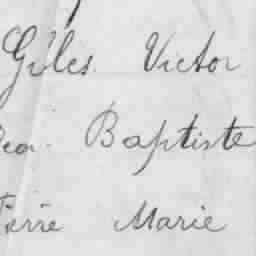 Giles Victor
Jean Baptiste
Pierre Marie